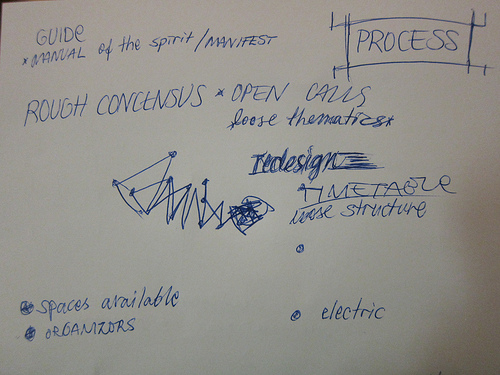 GUIDE
*MANUAL of the spirit/MANIFEST
PROCESS
ROUGH CONCENSUS * OPEN CALLS
*loose thematics*
redesign
TIMETABLE
loose structure
spaces available
ORGANIZORS
electric